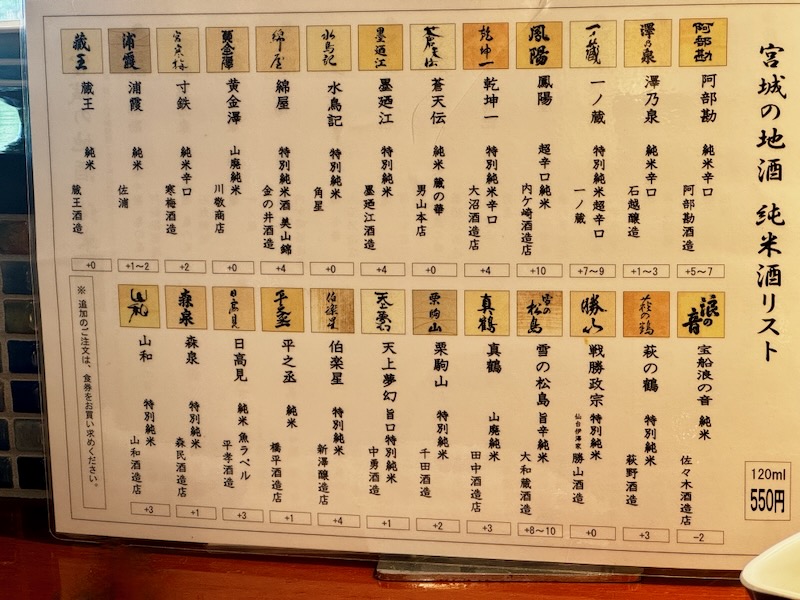 宮城の地酒 純米酒リスト
120ml
550円
阿部勘
阿部勘 純米辛口
阿部勘酒造
+5～7
澤乃泉
澤乃泉 純米辛口
石越醸造
+1～3
一ノ蔵
一ノ蔵 特別純米超辛口
一ノ蔵
+7～9
鳳陽
鳳陽 超辛口純米
内ケ崎酒造店
+10
乾坤一
乾坤一 特別純米辛口
大沼酒造店
+4
蒼天伝
蒼天伝 純米 蔵の華
男山本店
+0
墨廼江
墨廼江 特別純米
墨廼江酒造
+4
水鳥記
水鳥記 特別純米
角星
+0
綿屋
綿屋 特別純米酒 美山錦
金の井酒造
+4
黄金澤
黄金澤 山廃純米
川敬商店
+0
宮寒梅
寸鉄 純米辛口
寒梅酒造
+2
浦霞
浦霞 純米
佐浦
+1～2
蔵王
蔵王 純米
蔵王酒造
+0
浪の音
宝船浪の音 純米
佐々木酒造店
-2
萩の鶴
萩の鶴 特別純米
萩野酒造
+3
勝山
戦勝政宗 特別純米
仙台伊澤家 勝山酒造
+0
雪の松島
雪の松島 旨辛純米
大和蔵酒造
+8～10
真鶴
真鶴 山廃純米
田中酒造店
+3
栗駒山
栗駒山 特別純米
千田酒造
+2
天上夢幻
天上夢幻 旨口特別純米
中勇酒造
+1
伯楽星
伯楽星 特別純米
新澤醸造店
+4
平之丞
平之丞 純米
橋平酒造店
+1
日高見
日高見 純米 魚ラベル
平孝酒造
+3
森泉
森泉 特別純米
森民酒造店
+1
山和
山和 特別純米
山和酒造店
+3
※追加のご注文は、食券をお買い求めください。